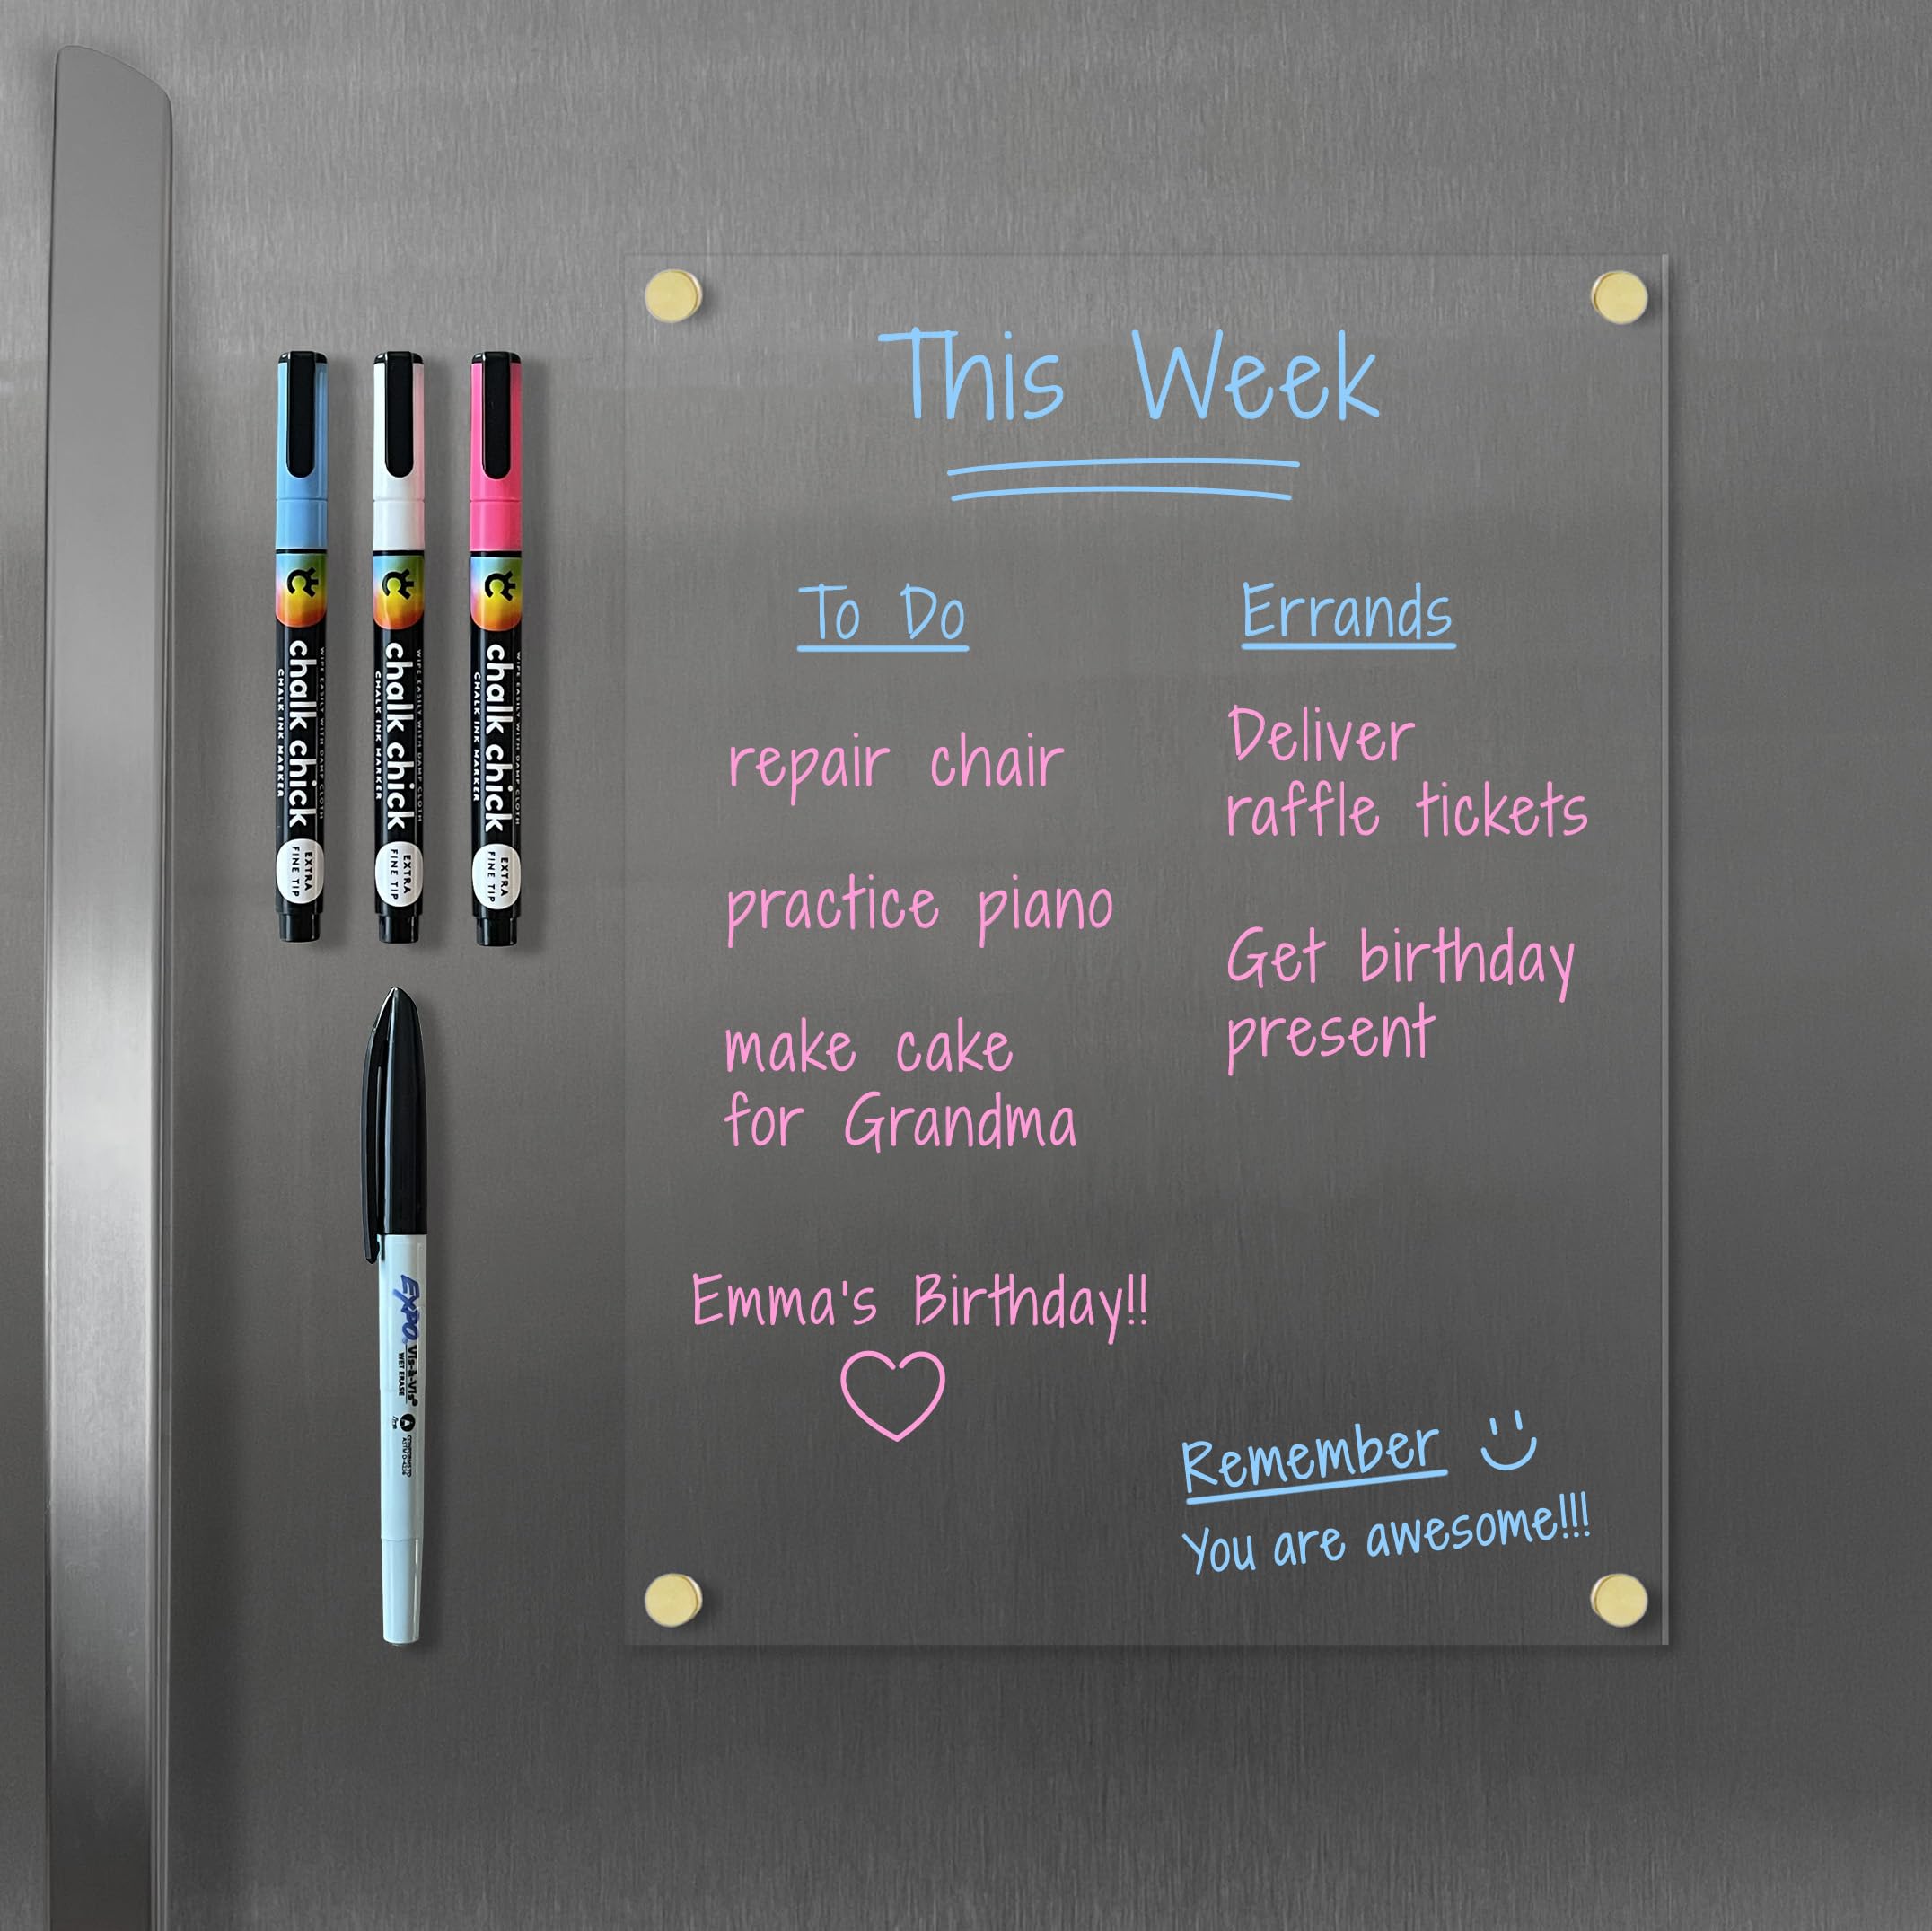 This Week
To Do
repair chair
practice piano
make cake
for Grandma
Emma's Birthday!!
Errands
Deliver
raffle tickets
Get birthday
present
Remember
You are awesome!!!
WIPE EASILY WITH DAMP CLOTH
chalk chick
CHALK INK MARKER
EXTRA
FINE TIP
WIPE EASILY WITH DAMP CLOTH
chalk chick
CHALK INK MARKER
EXTRA
FINE TIP
WIPE EASILY WITH DAMP CLOTH
chalk chick
CHALK INK MARKER
EXTRA
FINE TIP
EXPO Vis-à-Vis®
WET ERASE
fine
CONFORMS TO
ASTM D-4236